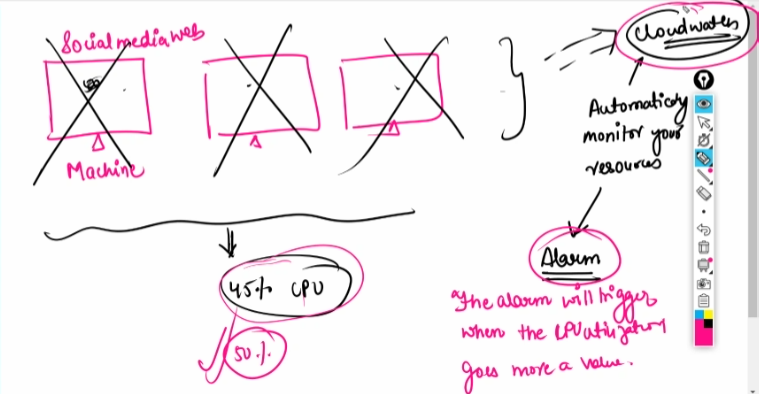 Social media web
Machine
Cloudwatch
Automaticaly
monitor your
resources
45% CPU
50%
Alarm
"The alarm will trigger
when the CPU utilization
goes more a value.